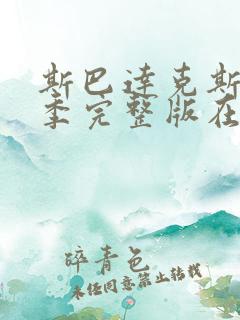 斯巴达克斯
季完整版在
碎青色
未经同意禁止转载